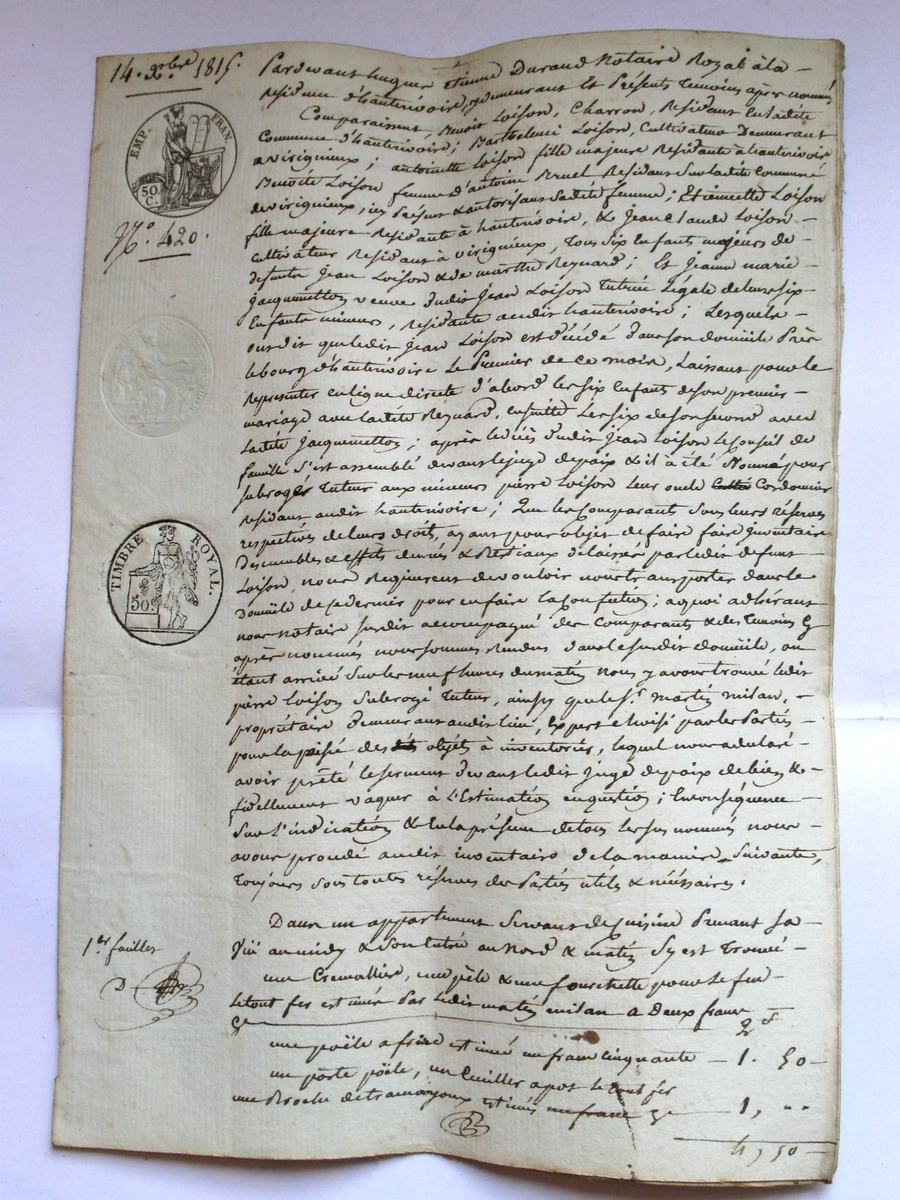 14. Xbre 1815.
EMP. FRAN.
50. C.
N.° 420.
TIMBRE ROYAL.
50c
Pardevant hugue étienne Durand Notaire Royal à la
residence d'hauterivoire, y demeurant Et Présents Temoins après nommés
Comparaissent, Benoit Loison, Charron, Residant en ladite
Commune d'hauterivoire; Barthelemi Loison, Cultivateur Demeurant
a virignieux; antoinette Loison fille majeure Residante à hauterivoire
Benoîte Loison femme d'antoine Residant Sur ladite Commune
de virignieux, ici Présent & autorisant Sadite femme; Et Loison
fille majeure Residante à hauterivoire, & Jean Claude Loison
Cultivateur Residant à virignieux, Tous Six Enfants majeurs de
defunts Jean Loison & de marthe Reynard; Et Jeanne marie
Jacquemetton veuve dudit Jean Loison Tutrice Légale de leurs six
Enfants mineurs, residante audit hauterivoire; Lesquels
ont dit que ledit Jean Loison est décédé dans son domicile Près
le bourg d'hauterivoire Le Premier de ce mois, Laissant pour le
Représenter en ligne directe d'abord les six Enfants de son premier
mariage avec ladite Reynard, ensuitte Les six de son second avec
Ladite Jacquemetton; après le décès dudit Jean Loison Le Conseil de
famille s'est assemblé devant le juge de paix & il à été Nommé pour
subrogé Tuteur aux mineurs pierre Loison leur oncle Cordonnier
residant audit hauterivoire; Que les Comparants Sous leurs réserves
respectives de leurs droits, ayant pour objet de faire faire inventaire
Des meubles & effets & Bestiaux délaissés par ledit defunt
Loison, nous Requierent de vouloir nous transporter dans le
Domicile de ce dernier pour en faire la Confection; a quoi adhérant
nous notaire susdit accompagné des Comparants & des Temoins cy
après nommés nous sommes Rendus dans le susdit domicile, ou
étant arrivé Sur les neuf heures du matin nous y avons trouvé ledit
pierre Loison Subrogé Tuteur, ainsy que le Sr. matis milan,
propriétaire Demeurant audit lieu, Expert choisi par les Parties
pour la prisée des objets à inventorier, lequel nous a déclaré
avoir prêté le serment devant ledit Juge de paix de bien &
fidellement vaquer à L'Estimation en question; En conséquence
Sur L'indication & En la présence de tous les sus nommés nous
avons procédé audit inventaire de la maniere Suivante,
Toujours Sous toutes réserves des Parties utiles & nécéssaires.
Dans un appartement Servant de Cuisine Prenant Sa
au midy & Son Entrée au Nord & matin S'y est Trouvé
une Cremalliere, une pèle & une fourchette pour le feu
le tout fer estimés Par ledit matis milan a Deux francs
2 f
une poële a frire estimée un franc cinquante — 1. 50 —
un porte poële, un Cuiller a pot le tout fer
une Broche de estimés un franc — 1, "
4, 50 —
1er. feuillet
D